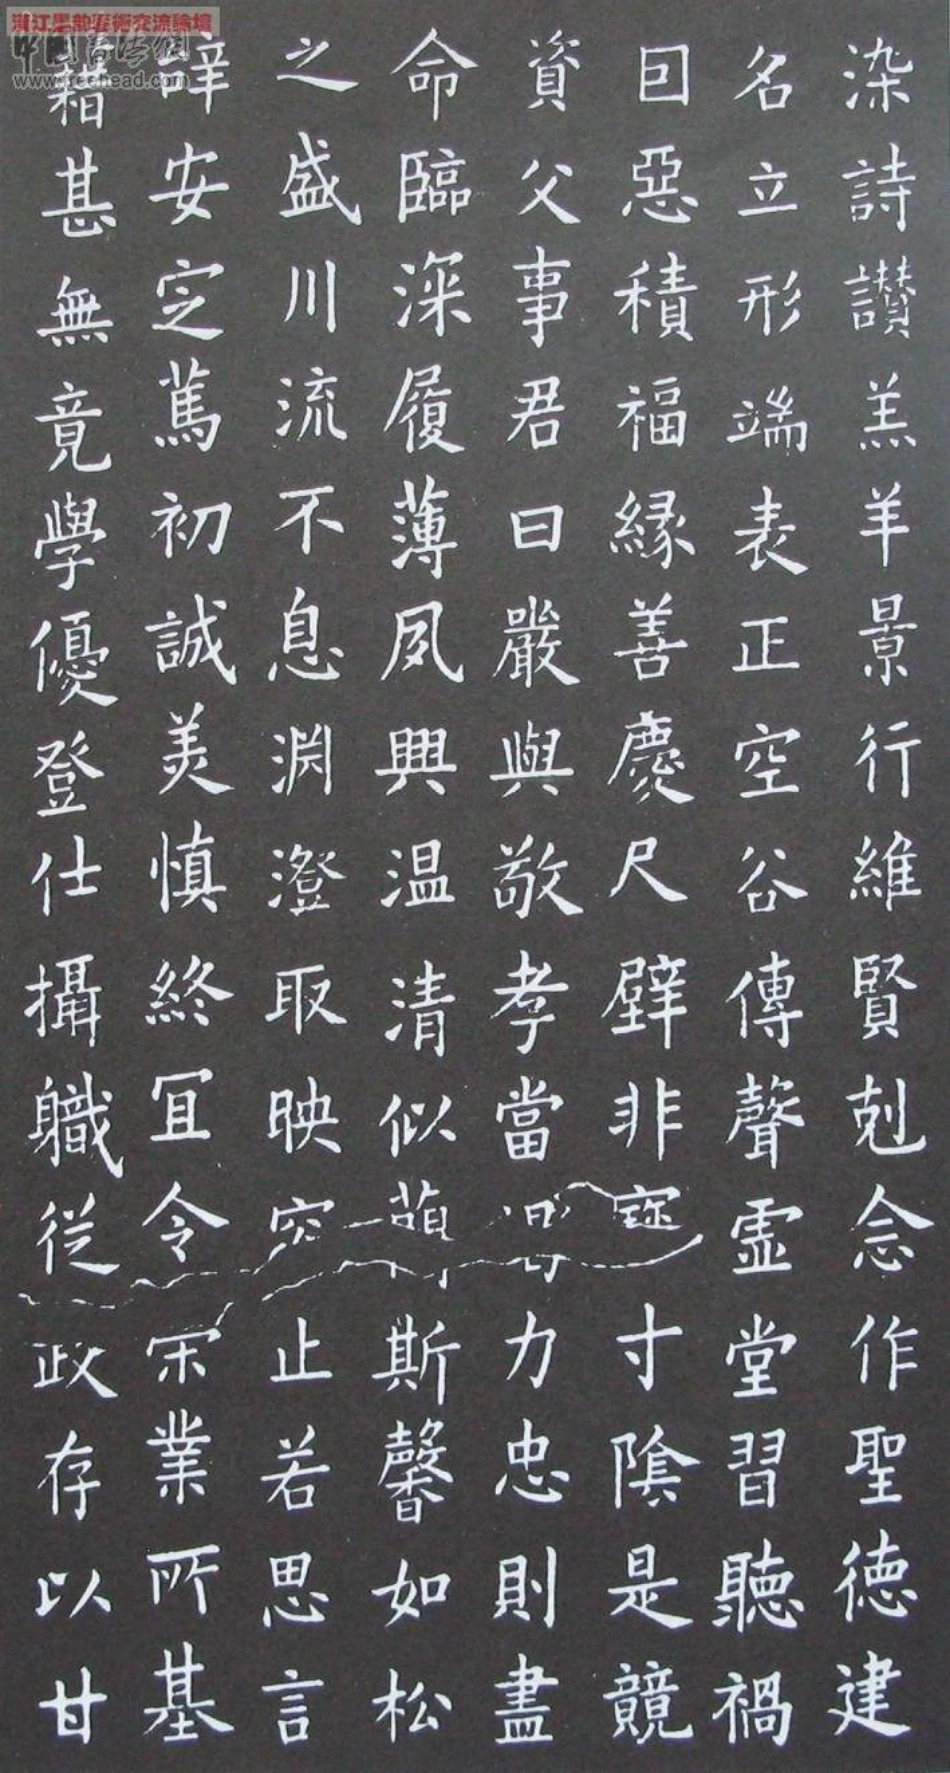 染詩讚羔羊景行維賢剋念作聖德建
名立形端表正空谷傳聲虛堂習聽禍
因惡積福緣善慶尺璧非寶寸陰是競
資父事君曰嚴與敬孝當竭力忠則盡
命臨深履薄夙興温清似蘭斯馨如松
之盛川流不息淵澄取映容止若思言
辞安定篤初誠美慎終宜令榮業所基
籍甚無竟學優登仕攝職從政存以甘